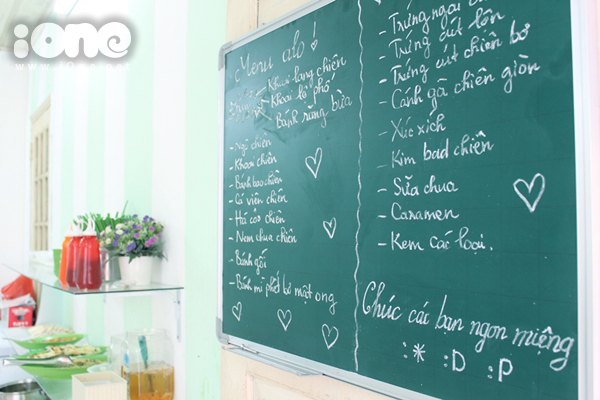 iOne
Menu alo!
- Khoai lang chiên
Khoai lệ phố
Bánh rung bừa
- Ngô chiên
- Khoai chiên
- Bánh bao chiên
- Cá viên chiên
- Há cảo chiên
- Nem chua chiên
- Bánh gối
- Bánh mì phết bơ mật ong
- Trứng ngải
- Trứng cút lộn
- Trứng cút chiên bơ
- Cánh gà chiên giòn
- Xúc xích
- Kim bad chiên
- Sữa chua
- Caramen
- Kem các loại.
Chúc các bạn ngon miệng
:* :D :P